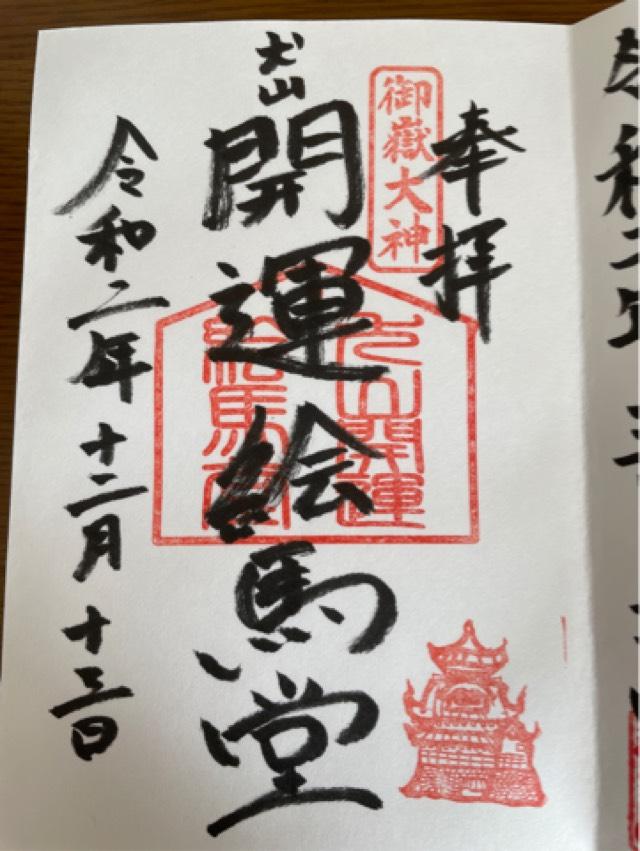 奉拝
御嶽大神
犬山
開運絵馬堂
犬山開運
絵馬堂
令和二年十二月十三日